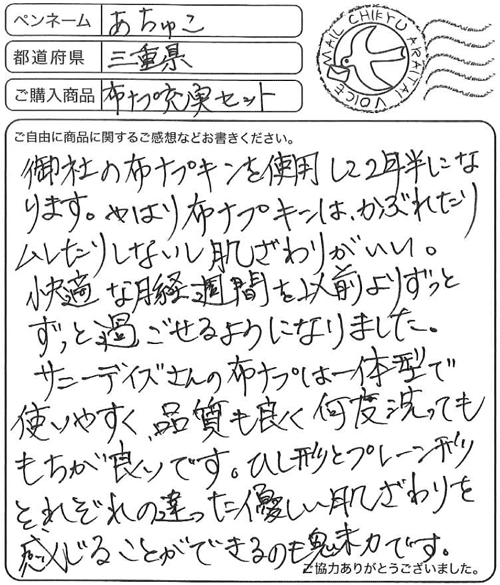 ペンネーム あちゅこ
都道府県 三重県
ご購入商品 布ナプ充実セット
MAIL CHIKYU ARAITAI VOICE
ご自由に商品に関するご感想などお書きください。
御社の布ナプキンを使用して2年半にな
ります。やはり布ナプキンは、かぶれたり
ムレたりしないし肌ざわりがいい。
快適な月経週間を以前よりずっと
ずっと過ごせるようになりました。
サニーデイズさんの布ナプは一体型で
使いやすく、品質も良く何度洗っても
もちが良いです。ひし形とプレーン形
それぞれの違った優しい肌ざわりを
感じることができるのも魅力です。
ご協力ありがとうございました。